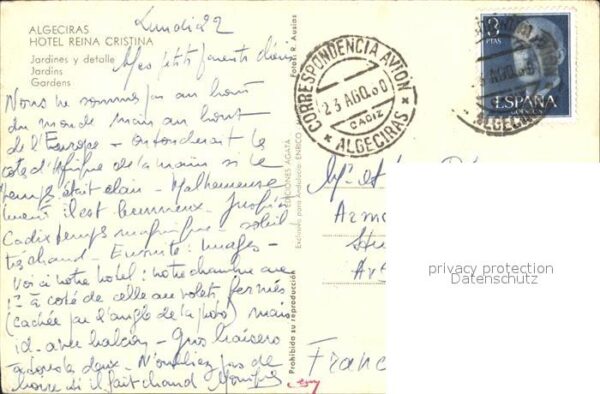 ALGECIRAS
HOTEL REINA CRISTINA
Jardines y detalle
Jardins
Gardens
Lundi 22
Mes petits parents chéris
Nous ne sommes pas au bout
du monde mais au bout
de l'Europe - on toucherait la
côte d'Afrique de la main si le
temps était clair - Malheureuse
ment il est brumeux - Jusqu'à
Cadix temps magnifique - soleil
très chaud - Ensuite : nuages -
Voici notre hôtel : notre chambre au
1er à côté de celle au volets fermés
(cachée par l'angle de la photo) mais
id. avec balcon - Gros baisers
à tous les deux - N'oubliez pas de
boire si il fait chaud
Fotos: R. Ausias
EDICIONES AGATA
Exclusiva para Andalucía: ENRICO
Prohibida su reproducción
CORRESPONDENCIA AVION
23 AGO. 60
CADIZ
ALGECIRAS
3
PTAS
ESPAÑA
CORREOS
ALGECIRAS
privacy protection
Datenschutz
Franc